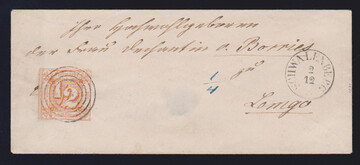 Ihro Hochwohlgeboren
der Frau Dechantin v. Borries
zu
Lemgo
1/4
12
SCHWALENBERG
2
12